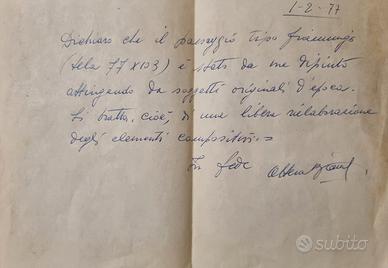 1-2-77
Dichiaro che il paesaggio tipo fiammingo
(tela 77 x 103) è stato da me dipinto
attingendo da soggetti originali d'epoca.
Si tratta, cioè, di una libera rielaborazione
degli elementi compositivi. =
In fede
subito